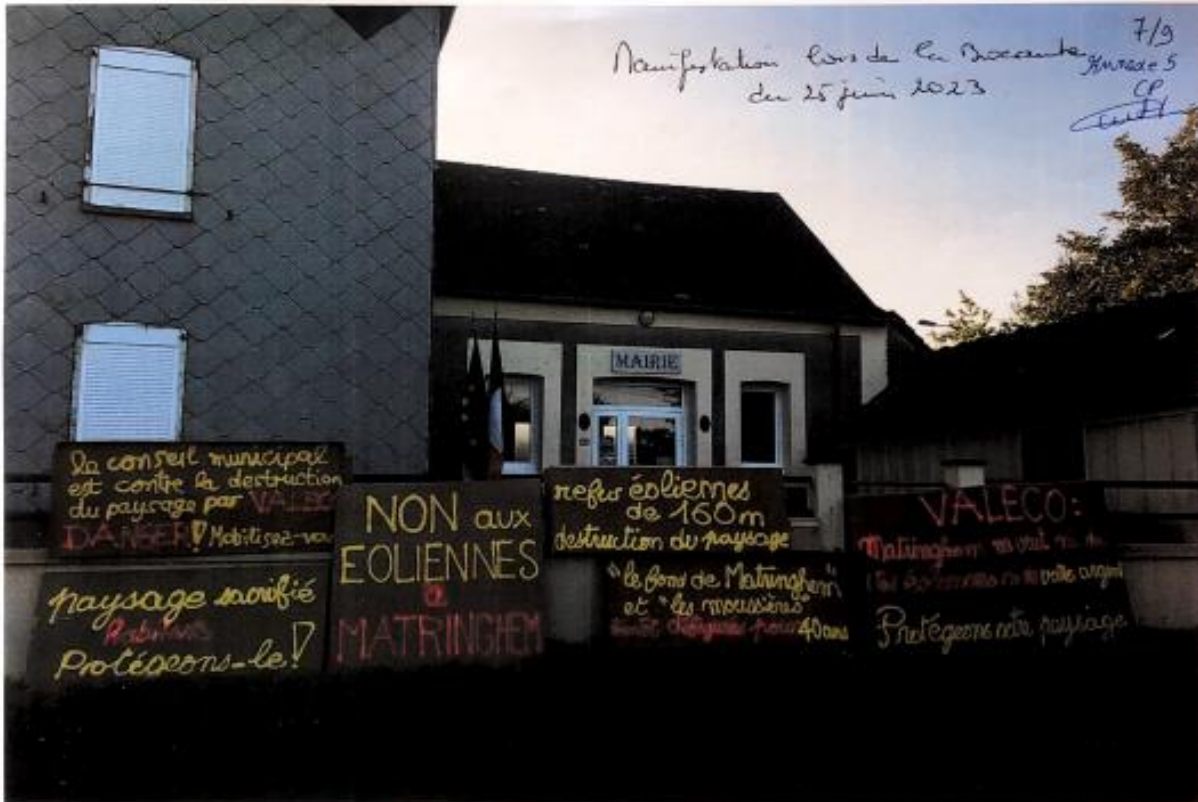 Manifestation lors de la Brocante
du 25 juin 2023
7/9
Annexe 5
CP
MAIRIE
la conseil municipal
est contre la destruction
du paysage par VALECO
DANGER ! Mobilisez-vo
paysage sacrifié
Protégeons-le !
NON aux
EOLIENNES
à
MATRINGHEM
refus éoliennes
de 160m
destruction du paysage
"le fond de Matringhem"
et "les moussières"
pour 40 ans
VALECO :
Matringhem ne veut ni de
éoliennes ni de votre argent
Protégeons notre paysage